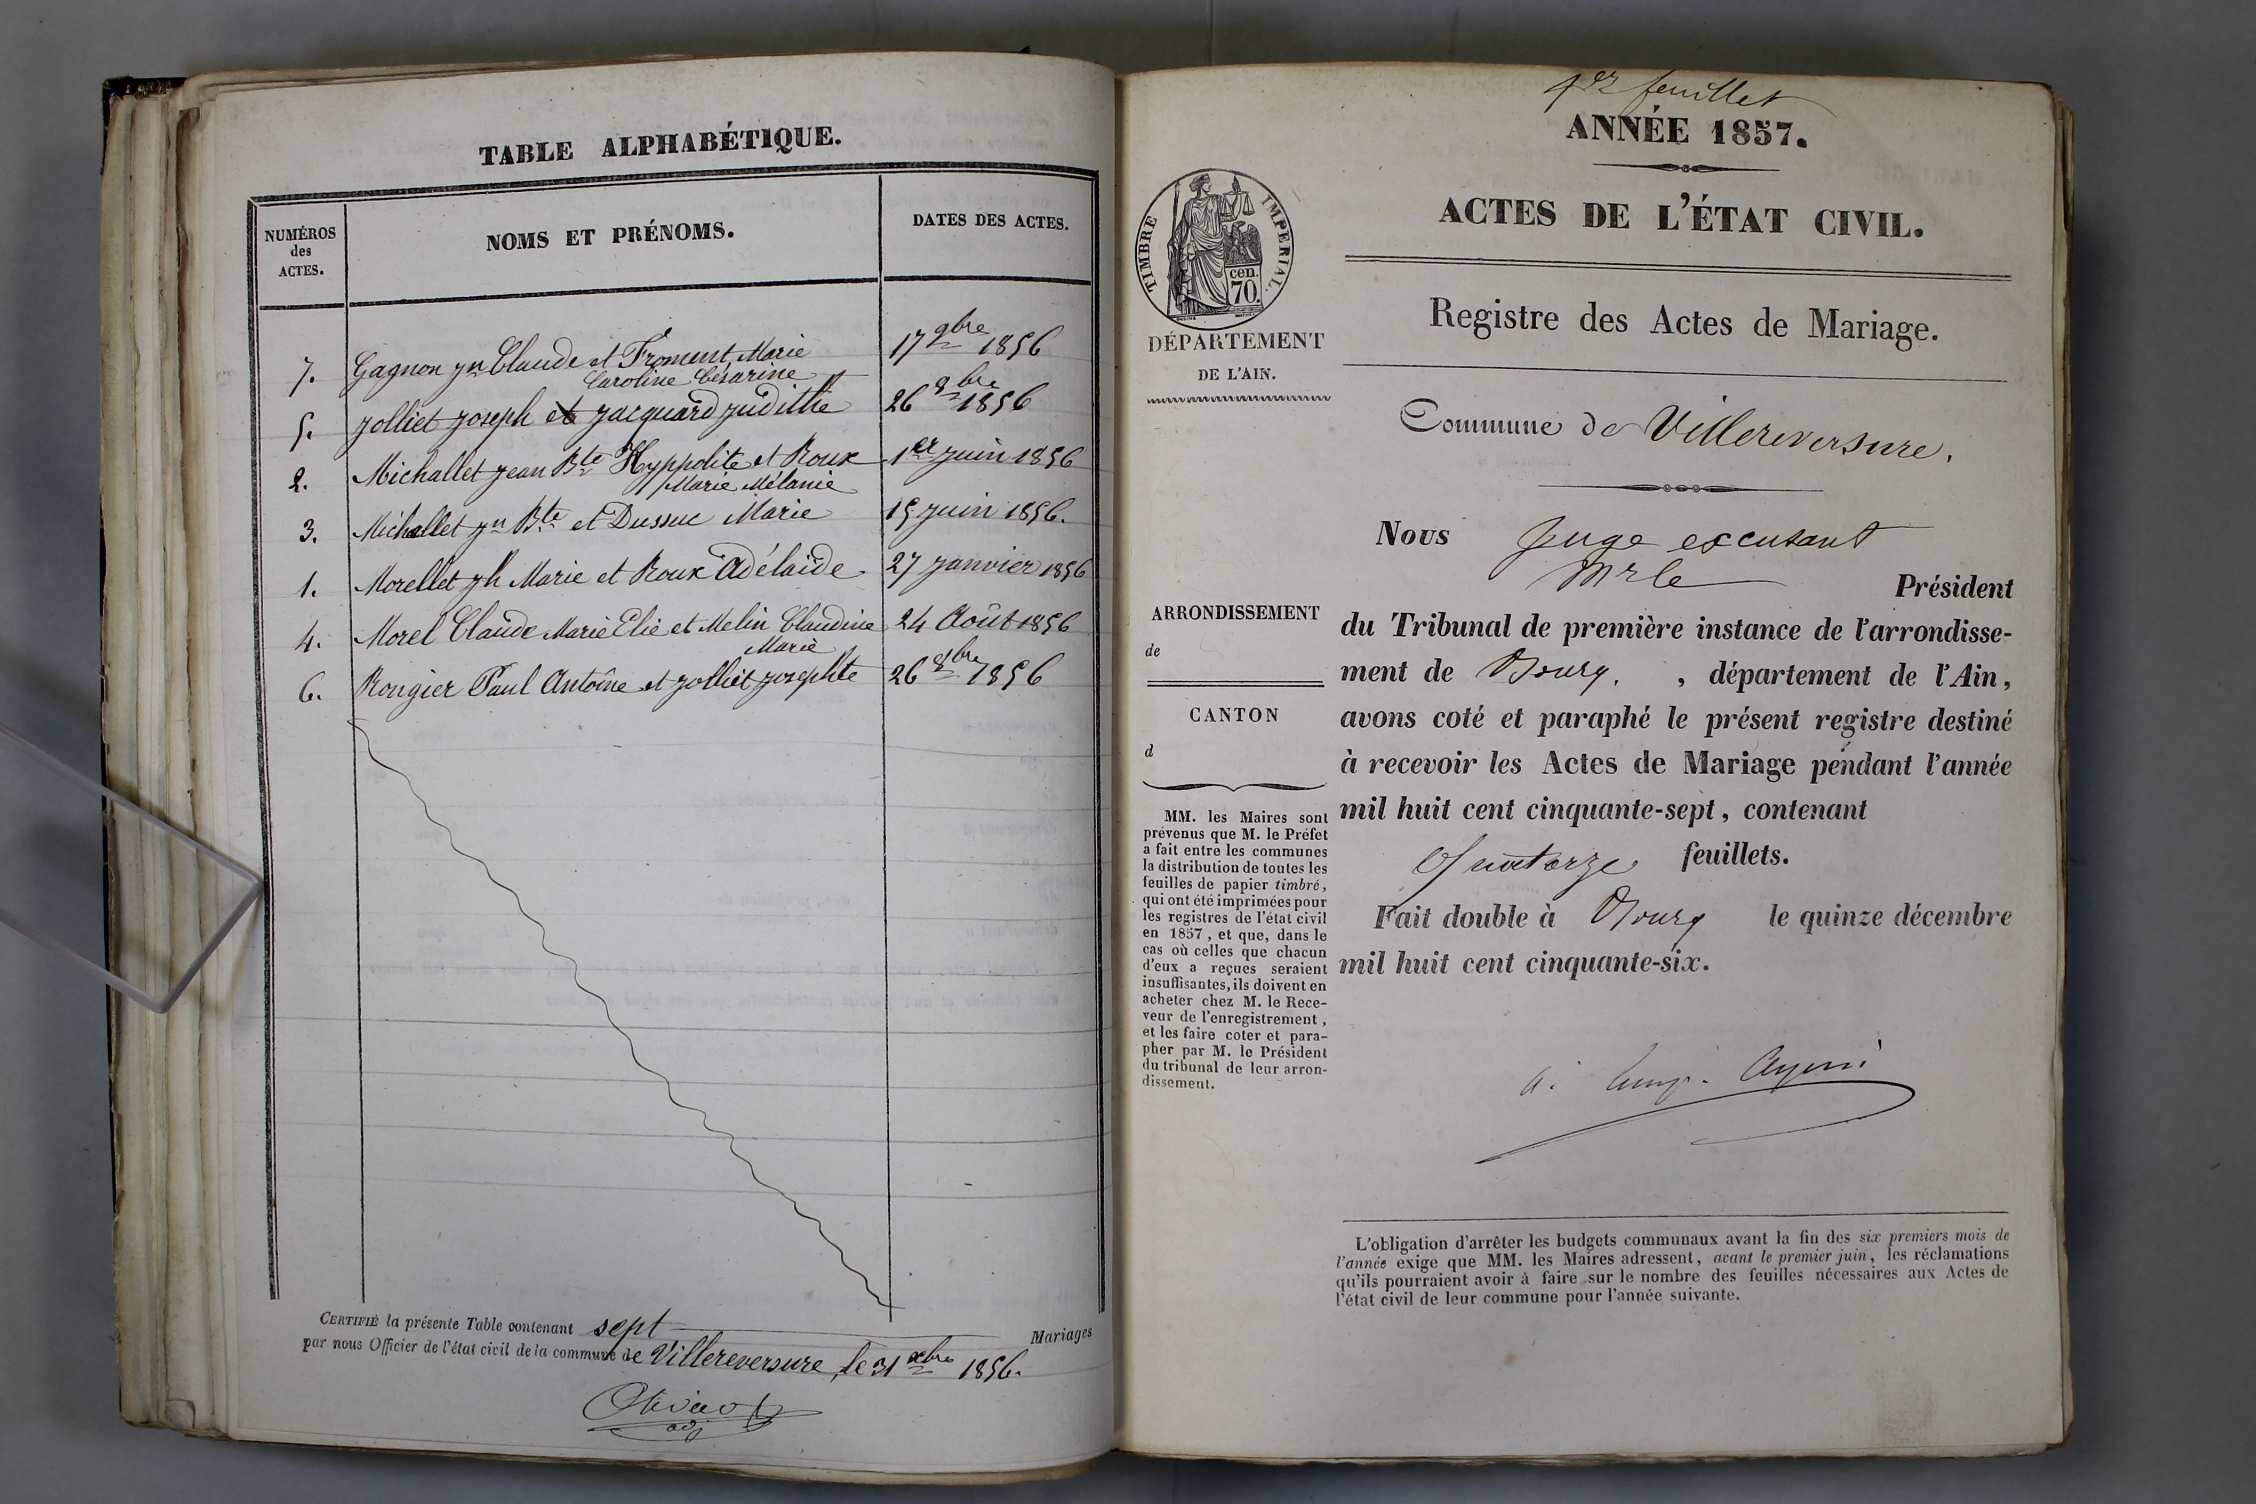 TABLE ALPHABÉTIQUE.
NUMÉROS
des
ACTES.
NOMS ET PRÉNOMS.
DATES DES ACTES.
7. Gagnon jn Claude et Froment, Marie 17 9bre 1856
Caroline Césarine
5. Jolliet Joseph et Jacquard Judithe 26 8bre 1856
2. Michallet Jean Bte Hyppolite et Roux 1er juin 1856
Marie Mélanie
3. Michallet Jn Bte et Dussuc Marie 15 juin 1856.
1. Morellet jh Marie et Roux Adélaide 27 janvier 1856
4. Morel Claude Marie Elie et Melin Claudine 24 Août 1856
Marie
6. Rougier Paul Antoîne et Jolliet Josephte 26 8bre 1856
CERTIFIÉ la présente Table contenant sept Mariages
par nous Officier de l'état civil de la commune de Villereversure, le 31 xbre 1856.
adj
1er feuillet
ANNÉE 1857.
ACTES DE L'ÉTAT CIVIL.
Registre des Actes de Mariage.
Commune de Villereversure.
TIMBRE IMPERIAL.
cen.
70.
DÉPARTEMENT
DE L'AIN.
ARRONDISSEMENT
de
CANTON
d
MM. les Maires sont
prévenus que M. le Préfet
a fait entre les communes
la distribution de toutes les
feuilles de papier timbré,
qui ont été imprimées pour
les registres de l'état civil
en 1857, et que, dans le
cas où celles que chacun
d'eux a reçues seraient
insuffisantes, ils doivent en
acheter chez M. le Rece-
veur de l'enregistrement,
et les faire coter et para-
pher par M. le Président
du tribunal de leur arron-
dissement.
Nous Juge excusant
Mr le Président
du Tribunal de première instance de l'arrondisse-
ment de Bourg. , département de l'Ain,
avons coté et paraphé le présent registre destiné
à recevoir les Actes de Mariage pendant l'année
mil huit cent cinquante-sept, contenant
Quatorze feuillets.
Fait double à Bourg le quinze décembre
mil huit cent cinquante-six.
L'obligation d'arrêter les budgets communaux avant la fin des six premiers mois de
l'année exige que MM. les Maires adressent, avant le premier juin, les réclamations
qu'ils pourraient avoir à faire sur le nombre des feuilles nécessaires aux Actes de
l'état civil de leur commune pour l'année suivante.